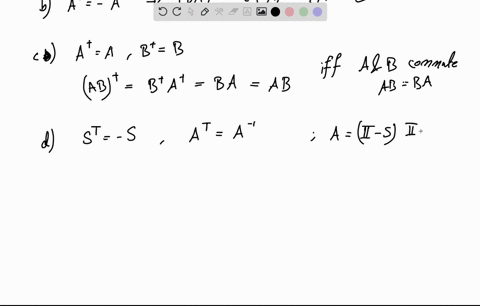 b) A† = - A
c) A† = A , B† = B
(AB)† = B†A† = BA = AB
iff A & B commute
AB = BA
d) Sᵀ = -S , Aᵀ = A⁻¹ ; A = (𝕀 - S) 𝕀